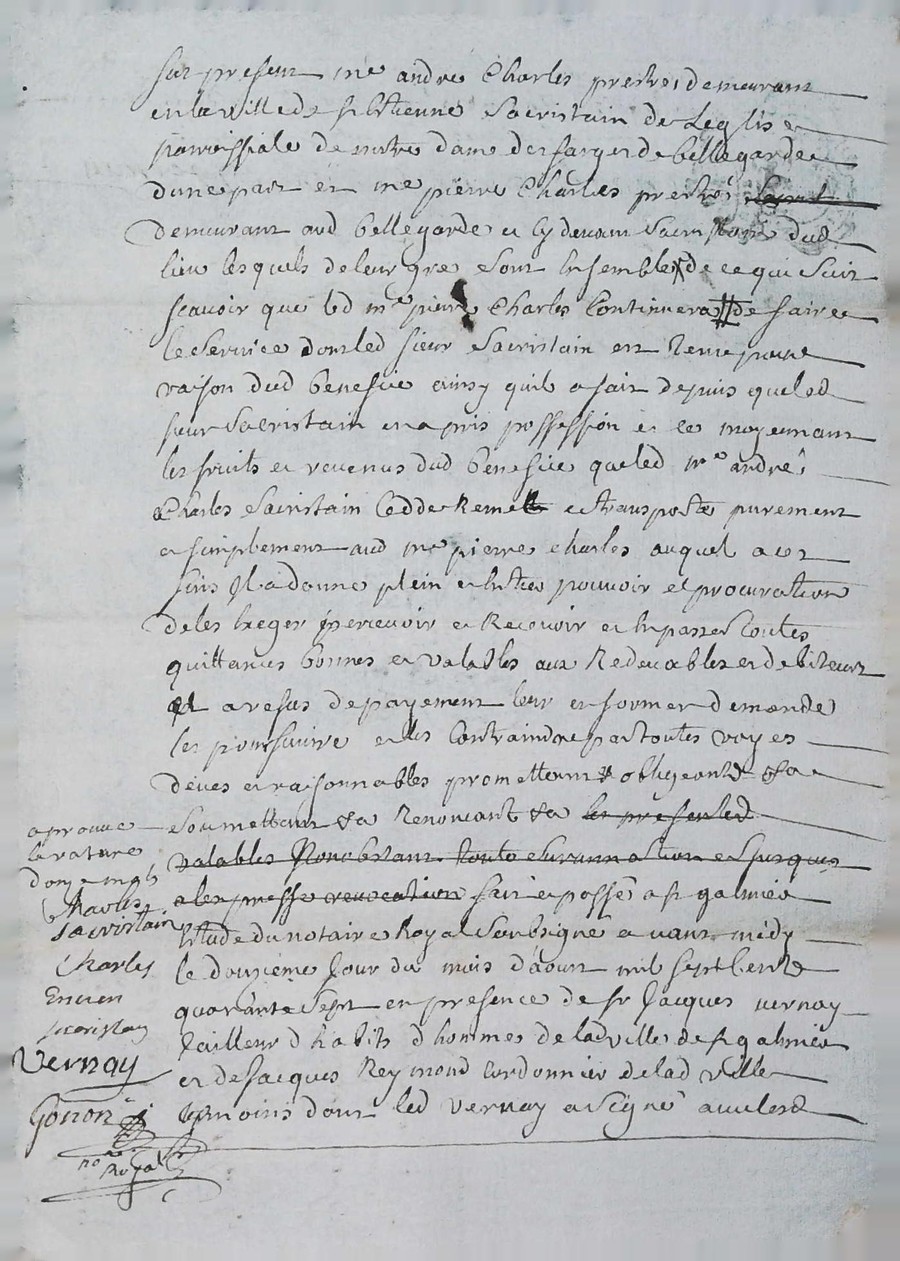 fut present me andré Charles prestre demeurant
en la ville de st Etienne Sacristain de Leglise
parroissiale de nostre dame des farges de bellegarde
dune part et me pierre Charles prestre
demeurant aud bellegarde cy devant Sacristain dud
lieu lesquels de leur gre sont Ensemble de ce qui suit
scavoir que led me pierre Charles Continuera de faire
le service dont led sieur Sacristain est tenu pour
raison dud benefice ainsy quil a fait depuis que led
sieur Sacristain en a pris possession et ce moyennant
les fruits et revenus dud benefice que led me andré
Charles Sacristain Cedde Remet et transporte purement
et simplement aud me pierre charles auquel a ces
fins Il a donne plein et Entier pouvoir et procuration
de les Exiger percevoir et Recevoir et En passer toutes
quittances bonnes et valables aux Redevables et debiteurs
et a refus de payement leur en former demande
les poursuivre et les Contraindre par toutes voyes
deues et raisonnables promettant obligeant &a
soumettant &a Renoncant &a les presentes
valables Nonobstant toute Surannation et jusques
a lexpresse revocation fait et passé a st galmier
Etude du notaire Royal Soubsigné avant midy
le douzieme Jour du mois d'aoust mil sept Cents
quarante Sept en presence de sr Jacques vernay
Tailleur d'habits d'hommes de la ville de st galmier
et de Jacques Reymond Cordonnier de lad ville
temoins dont led vernay a signé avec lesd
aprouve
la rature
donze mots
Charles
sacristain
Charles
Encien
sacristain
Vernay
Gonon
nore
Royal